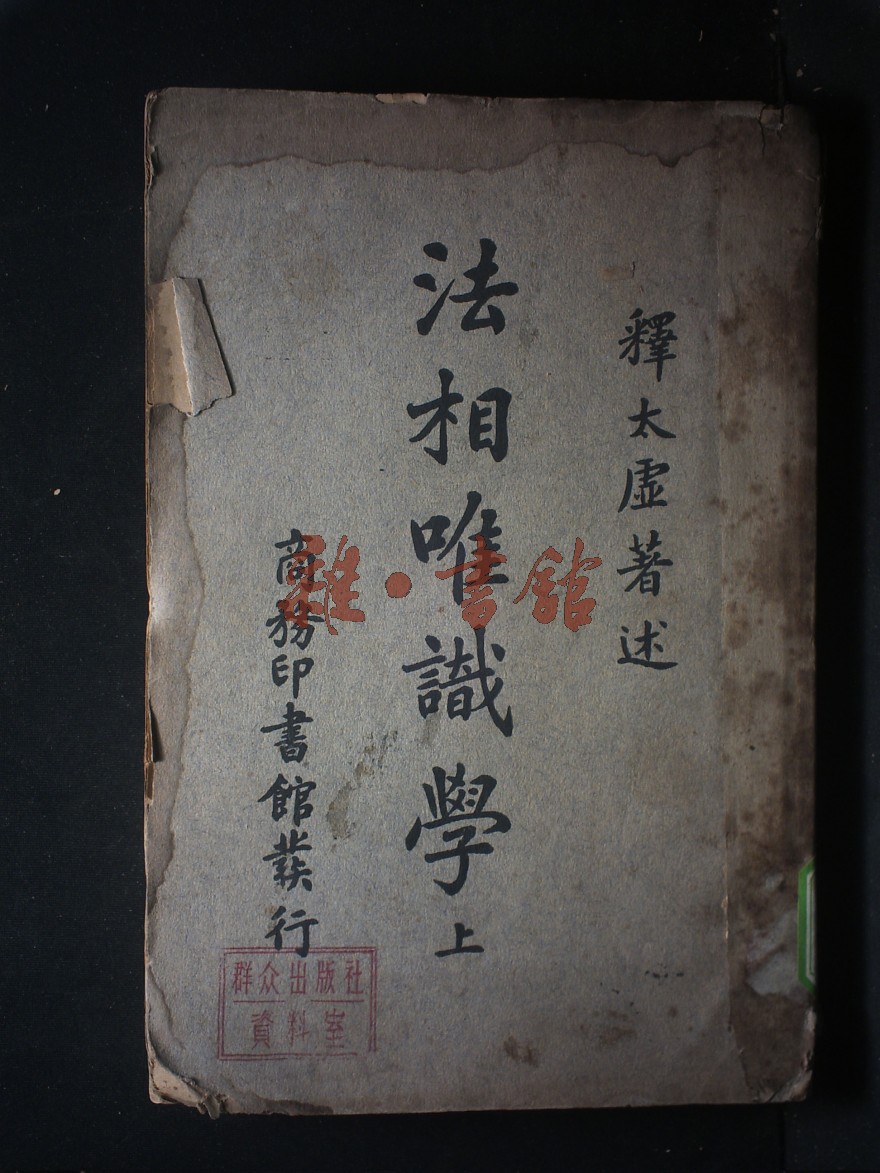 釋太虛著述
法相唯識學上
商務印書館發行
雜·書館
群众出版社
資料室